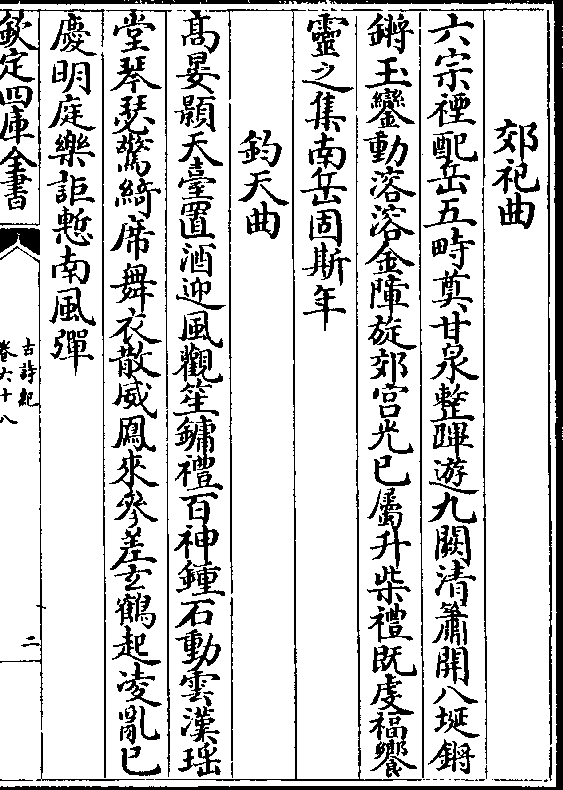 郊祀曲
六宗禋配岳五畤奠甘泉整蹕遊九闕清簫開八埏鏘
鏘玉鑾動溶溶金障旋郊宫光已屬升柴禮既虔福饗
靈之集南岳固斯年
鈞天曲
髙晏顥天臺置酒迎風觀笙鏞禮百神鍾石動雲漢瑶
堂琴瑟驚綺席舞衣散威鳳來參差玄鶴起凌亂已
慶明庭樂詎慙南風彈
欽定四庫全書
古詩紀
卷六十八
二